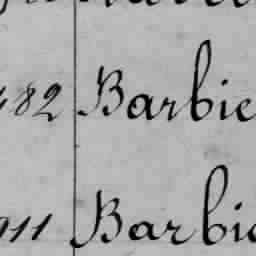 82 Barbie
911 Barbie